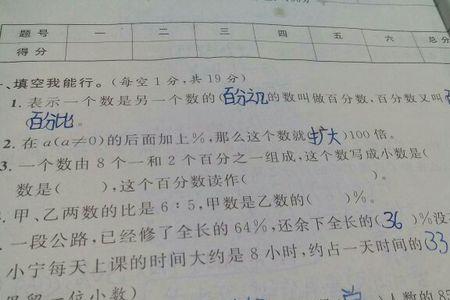 题号 一 二 三 四 五 六 总分
得分
一、填空我能行。(每空1分,共19分)
1. 表示一个数是另一个数的(百分之几)的数叫做百分数,百分数又叫
百分比。
2. 在a(a≠0)的后面加上%,那么这个数就(扩大)100倍。
3. 一个数由8个一和2个百分之一组成,这个数写成小数是(
数是( ),这个百分数读作(
甲、乙两数的比是6:5,甲数是乙数的( )%。
一段公路,已经修了全长的64%,还余下全长的(36)%没
小宁每天上课的时间大约是8小时,约占一天时间的(33
留一位小数)
人数的85